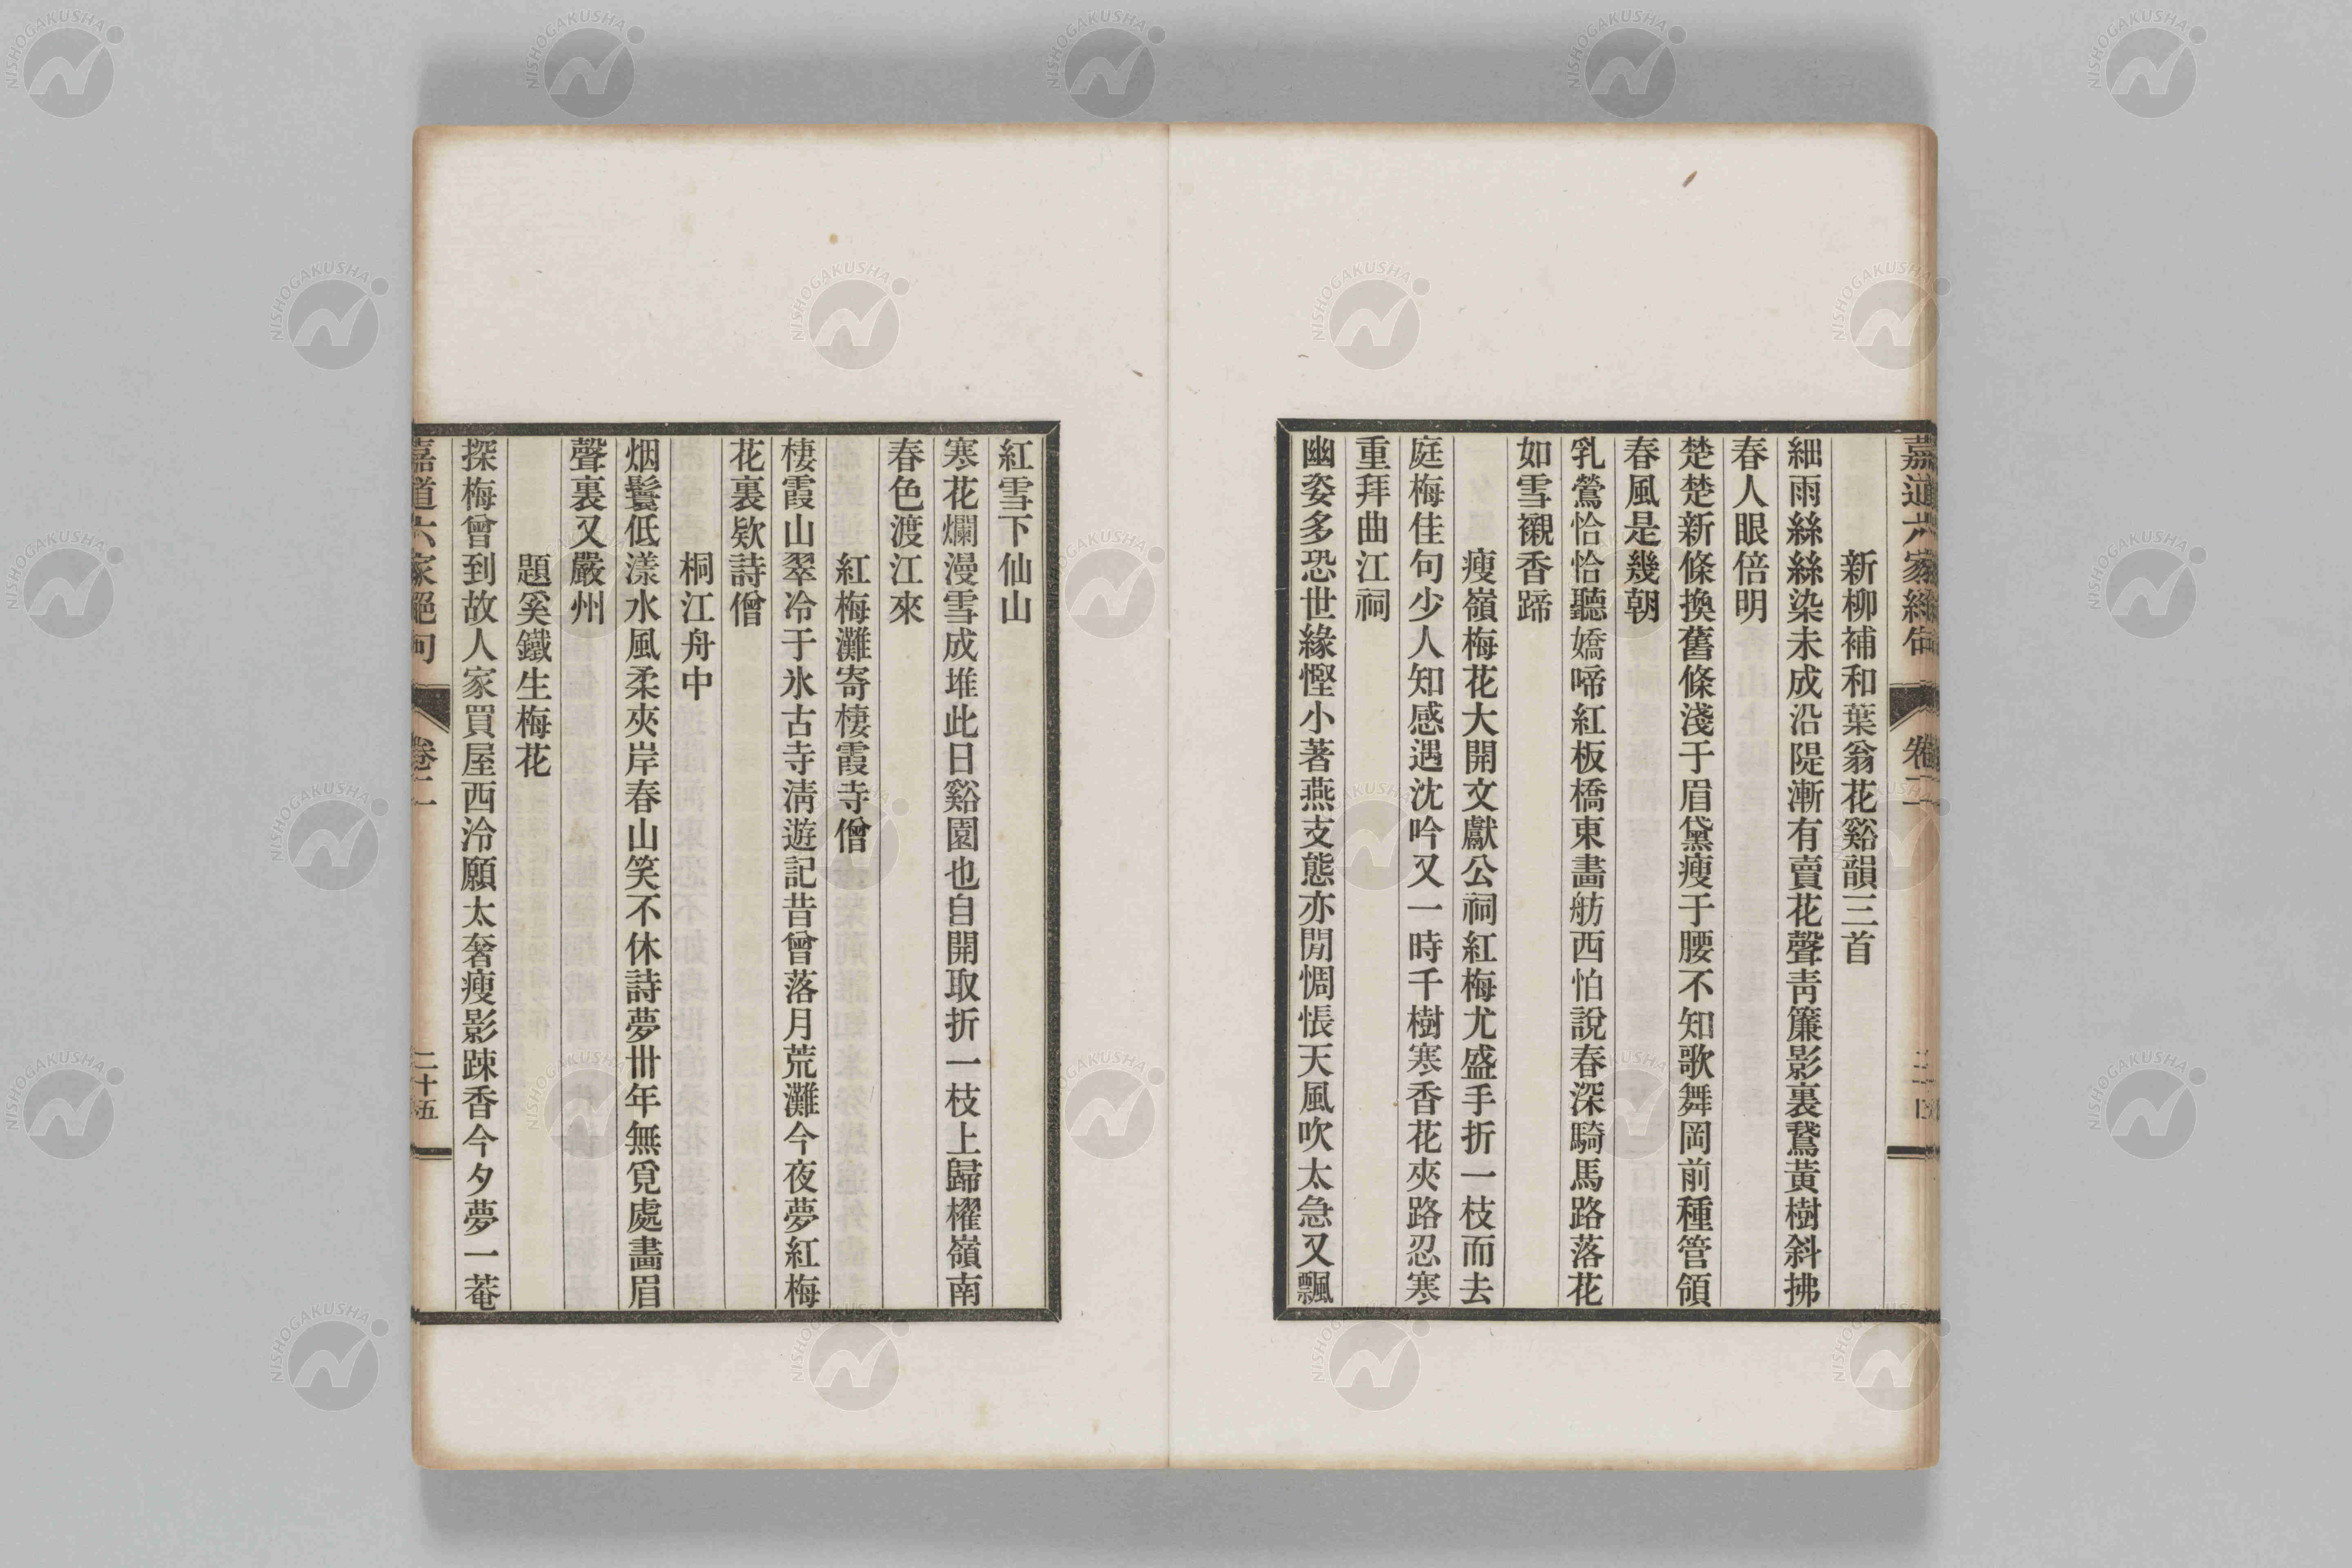 嘉道六家絕句
卷二
新柳補和葉翁花谿韻三首
細雨絲絲染未成沿隄漸有賣花聲靑簾影裏鵞黃樹斜拂
春人眼倍明
楚楚新條換舊條淺于眉黛瘦于腰不知歌舞岡前種管領
春風是幾朝
乳鶯恰恰聽嬌啼紅板橋東畵舫西怕說春深騎馬路落花
如雪襯香蹄
瘦嶺梅花大開文獻公祠紅梅尤盛手折一枝而去
庭梅佳句少人知感遇沈吟又一時千樹寒香花夾路忍寒
重拜曲江祠
幽姿多恐世緣慳小著燕支態亦閒惆悵天風吹太急又飄
紅雪下仙山
寒花爛漫雪成堆此日谿園也自開取折一枝上歸櫂嶺南
春色渡江來
紅梅灘寄棲霞寺僧
棲霞山翠冷于氷古寺淸遊記昔曾落月荒灘今夜夢紅梅
花裏欵詩僧
桐江舟中
烟鬟低漾水風柔夾岸春山笑不休詩夢卅年無覓處畵眉
聲裏又嚴州
題奚鐵生梅花
探梅曾到故人家買屋西泠願太奢瘦影踈香今夕夢一菴
嘉道六家絕句
卷二
二十五
NISHOGAKUSHA